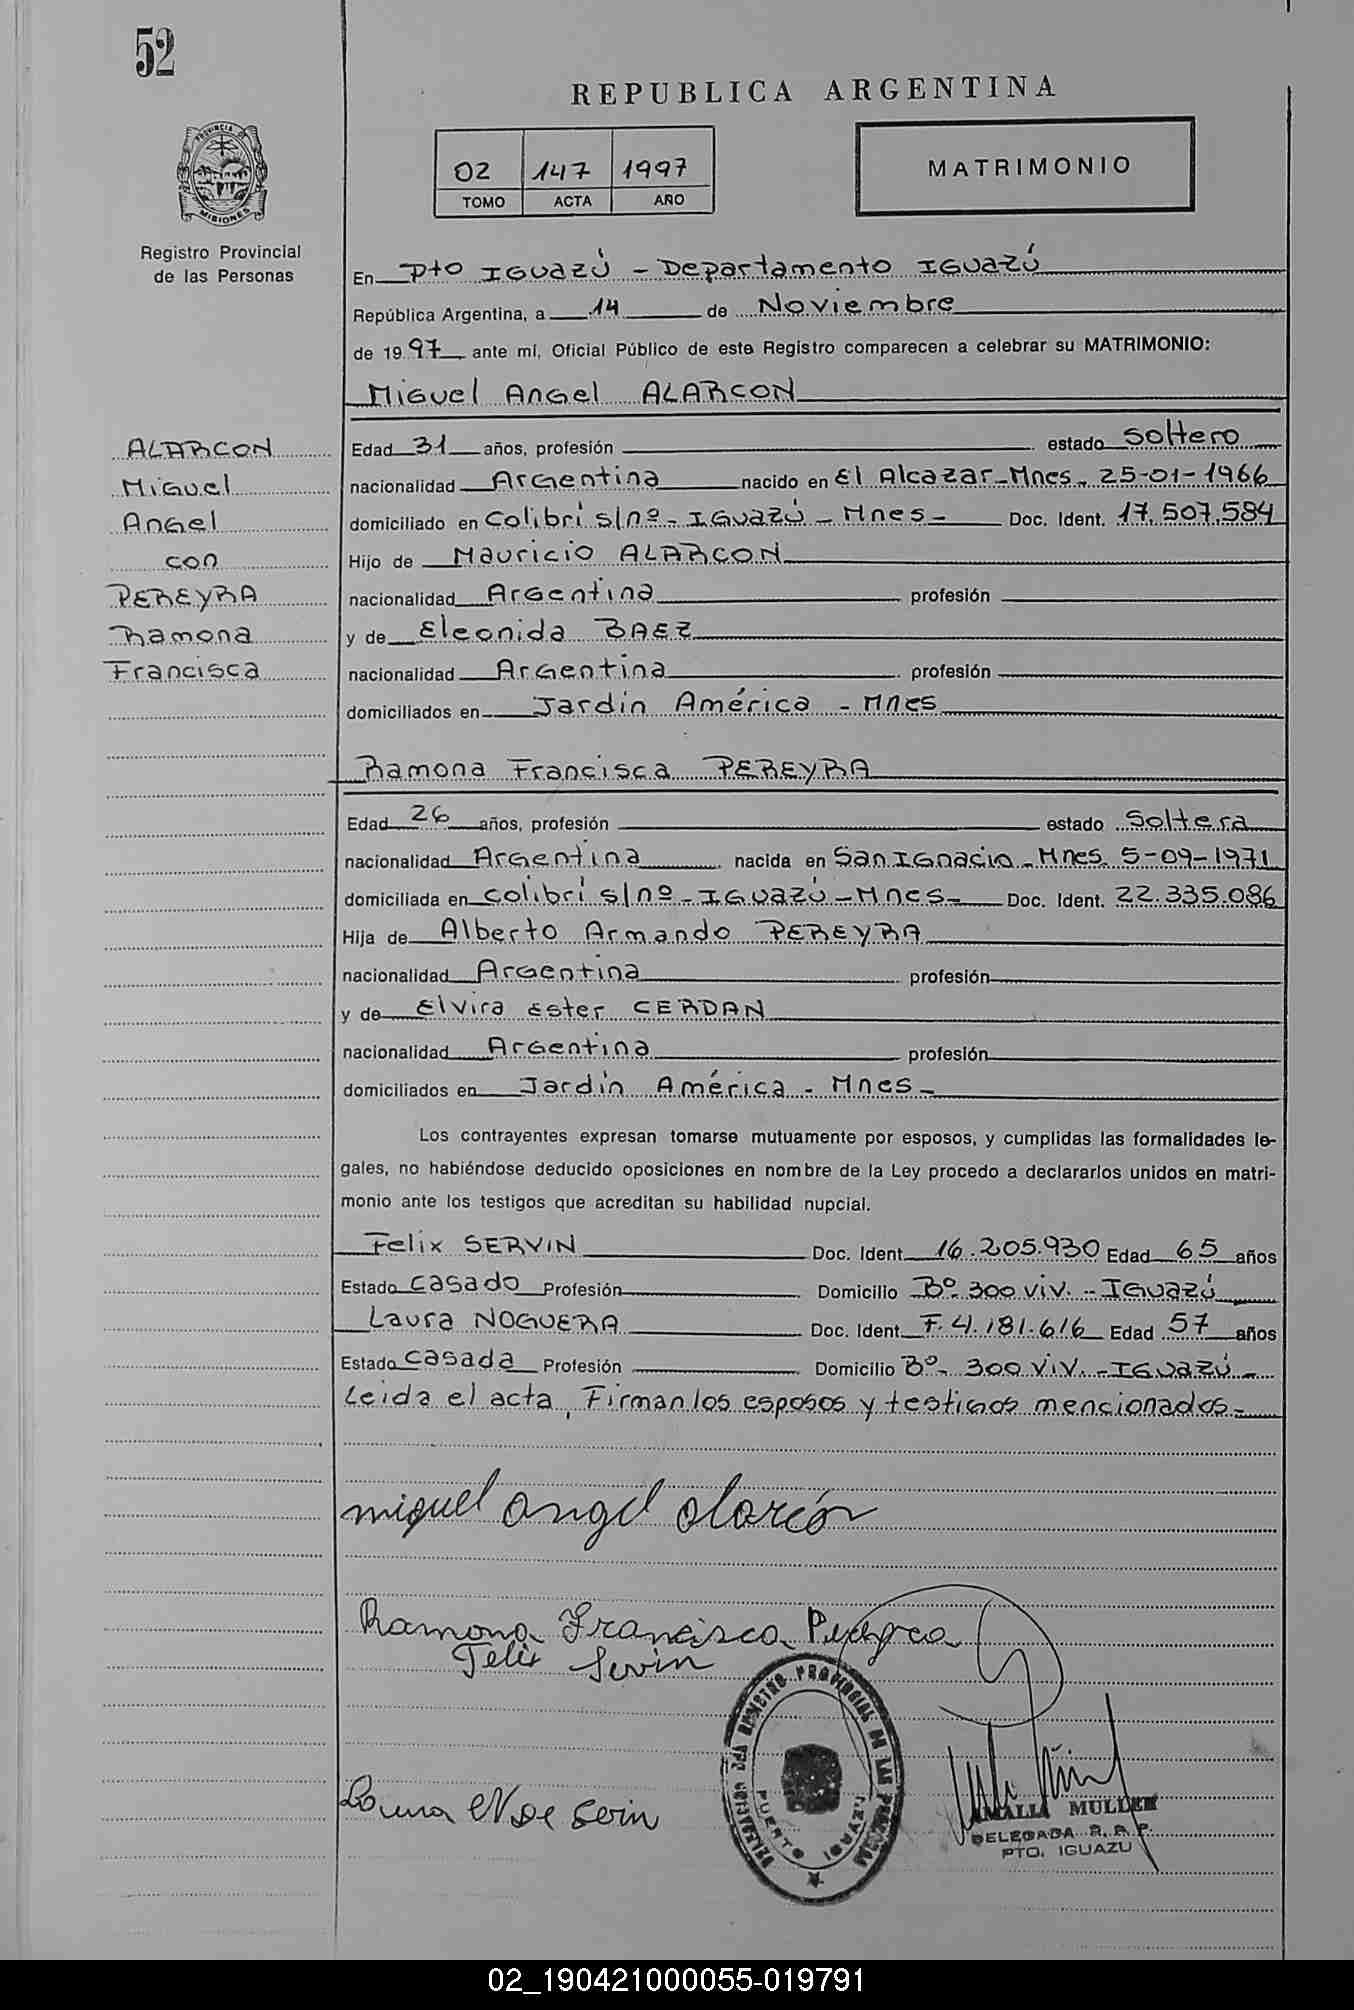 52
REPUBLICA ARGENTINA
02 147 1997
TOMO ACTA AÑO
MATRIMONIO
PROVINCIA DE
MISIONES
Registro Provincial
de las Personas
En Pto IGUAZÚ - Departamento IGUAZÚ
República Argentina, a 14 de Noviembre
de 1997 ante mí, Oficial Público de este Registro comparecen a celebrar su MATRIMONIO:
Miguel Angel ALARCON
ALARCON
Miguel
Angel
con
PEREYRA
Ramona
Francisca
Edad 31 años, profesión estado Soltero
nacionalidad Argentina nacido en El Alcazar-Mnes- 25-01-1966
domiciliado en Colibrí s/nº - IGUAZÚ - Mnes - Doc. Ident. 17.507.584
Hijo de Mauricio ALARCON
nacionalidad Argentina profesión
y de Eleonida BAEZ
nacionalidad Argentina profesión
domiciliados en Jardín América - Mnes
Ramona Francisca PEREYRA
Edad 26 años, profesión estado Soltera
nacionalidad Argentina nacida en San Ignacio - Mnes. 5-09-1971
domiciliada en Colibrí s/nº - IGUAZÚ - Mnes - Doc. Ident. 22.335.086
Hija de Alberto Armando PEREYRA
nacionalidad Argentina profesión
y de Elvira Ester CERDAN
nacionalidad Argentina profesión
domiciliados en Jardín América - Mnes -
Los contrayentes expresan tomarse mutuamente por esposos, y cumplidas las formalidades le-
gales, no habiéndose deducido oposiciones en nombre de la Ley procedo a declararlos unidos en matri-
monio ante los testigos que acreditan su habilidad nupcial.
Felix SERVIN Doc. Ident 16.205.930 Edad 65 años
Estado Casado Profesión Domicilio Bº 300 viv. - IGUAZÚ
Laura NOGUERA Doc. Ident F.4.181.616 Edad 57 años
Estado Casada Profesión Domicilio Bº- 300 viv. - IGUAZÚ -
Leida el acta, Firman los esposos y testigos mencionados -
miguel angel alarcón
Ramona Francisca Pereyra
Felix Servin
Laura N de Servin
REGISTRO PROVINCIAL DE LAS PERSONAS
PUERTO
AMALIA MULLER
DELEGADA R. P. P.
PTO. IGUAZU
02_190421000055-019791